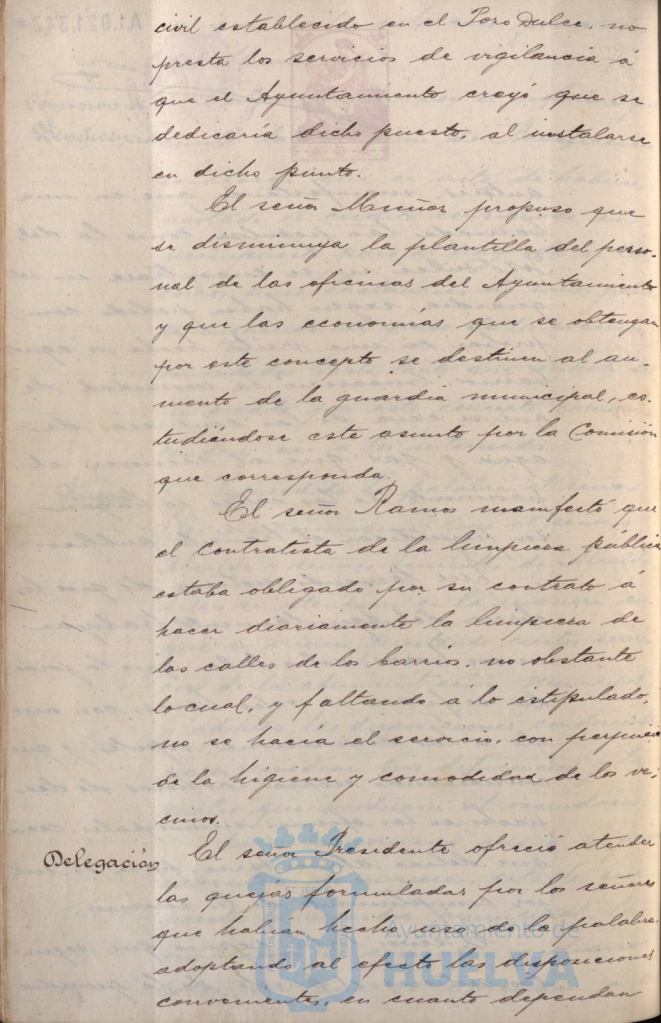 civil establecido en el Pozo Dulce, no
presta los servicios de vigilancia á
que el Ayuntamiento creyó que se
dedicaría dicho puesto, al instalarse
en dicho punto.
El señor Muñoz propuso que
se disminuya la plantilla del perso-
nal de las oficinas del Ayuntamiento
y que las economías que se obtengan
por este concepto se destinen al au-
mento de la guardia municipal, es-
tudiándose este asunto por la Comisión
que corresponda.
El señor Ramos manifestó que
el contratista de la limpieza pública
estaba obligado por su contrato á
hacer diariamente la limpieza de
las calles de los barrios, no obstante
lo cual, y faltando á lo estipulado,
no se hacía el servicio, con perjuicio
de la higiene y comodidad de los ve-
cinos.
Delegación El señor Presidente ofreció atender
las quejas formuladas por los señores
que habían hecho uso de la palabra,
adoptando al efecto las disposiciones
convenientes, en cuanto dependan
Ayuntamiento de
HUELVA